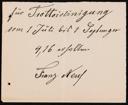 für Trottoirreinigung
vom 1 Juli bis 1 September
9,16 erhalten
Franz Neuf